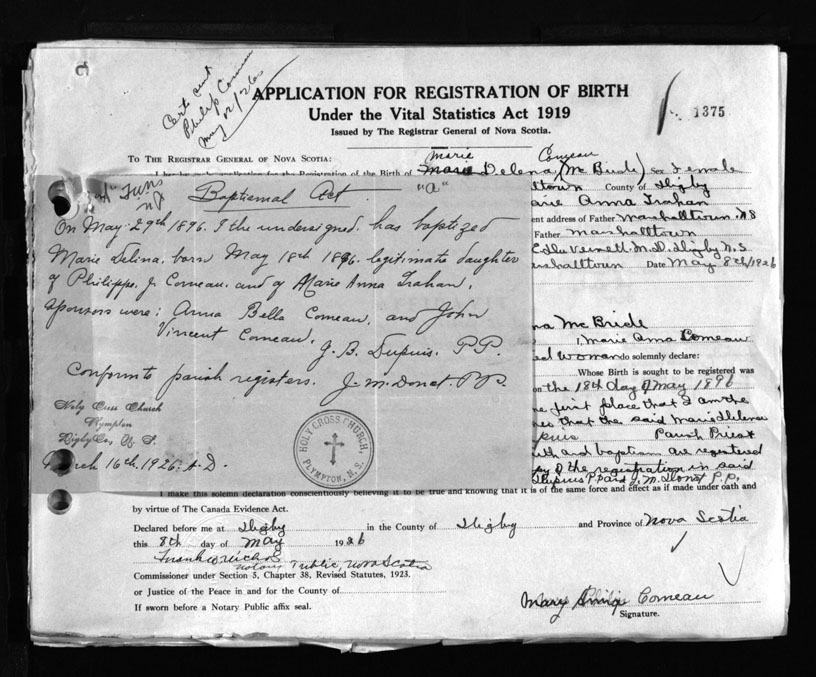 Cert sent
Philip Comeau
May 12/26
APPLICATION FOR REGISTRATION OF BIRTH
Under the Vital Statistics Act 1919
Issued by The Registrar General of Nova Scotia.
1375
TO THE REGISTRAR GENERAL OF NOVA SCOTIA:
Marie Comeau
Registration of the Birth of Marie Delena (McBride) Sex Female
"a"
County of Digby
Anna Trahan
ent address of Father Marshalltown N S
Father Marshalltown
M.D. Digby N.S.
Date May 8th/1926
Baptismal Act
On May 29th 1896. I the undersigned has baptized
Marie Delina, born May 18th 1896. legitimate daughter
of Philippe J. Comeau. and of Marie Anna Trahan,
sponsors were: Anna Bella Comeau, and John
Vincent Comeau.
J. B. Dupuis. P.P.
Conform to parish registers. J. M. Donat. P.P.
Holy Cross Church
Plympton
Digby Co., N. S.
March 16th. 1926. A.D.
HOLY CROSS CHURCH, PLYMPTON, N.S.
na McBride
Marie Anna Comeau
ed woman do solemnly declare:
Whose Birth is sought to be registered was
on the 18th day of May 1896
first place that I am the
that the said Marie Delena
Parish Priest
and baptism are registered
of the registration in said
Dupuis P.P. and J. M. Donat P.P.
I make this solemn declaration conscientiously believing it to be true and knowing that it is of the same force and effect as if made under oath and
by virtue of The Canada Evidence Act.
Declared before me at Digby in the County of Digby and Province of Nova Scotia
this 8th day of May 1926
Notary Public, Nova Scotia
Commissioner under Section 5, Chapter 38, Revised Statutes, 1923.
or Justice of the Peace in and for the County of
If sworn before a Notary Public affix seal.
Mary Comeau
Signature.